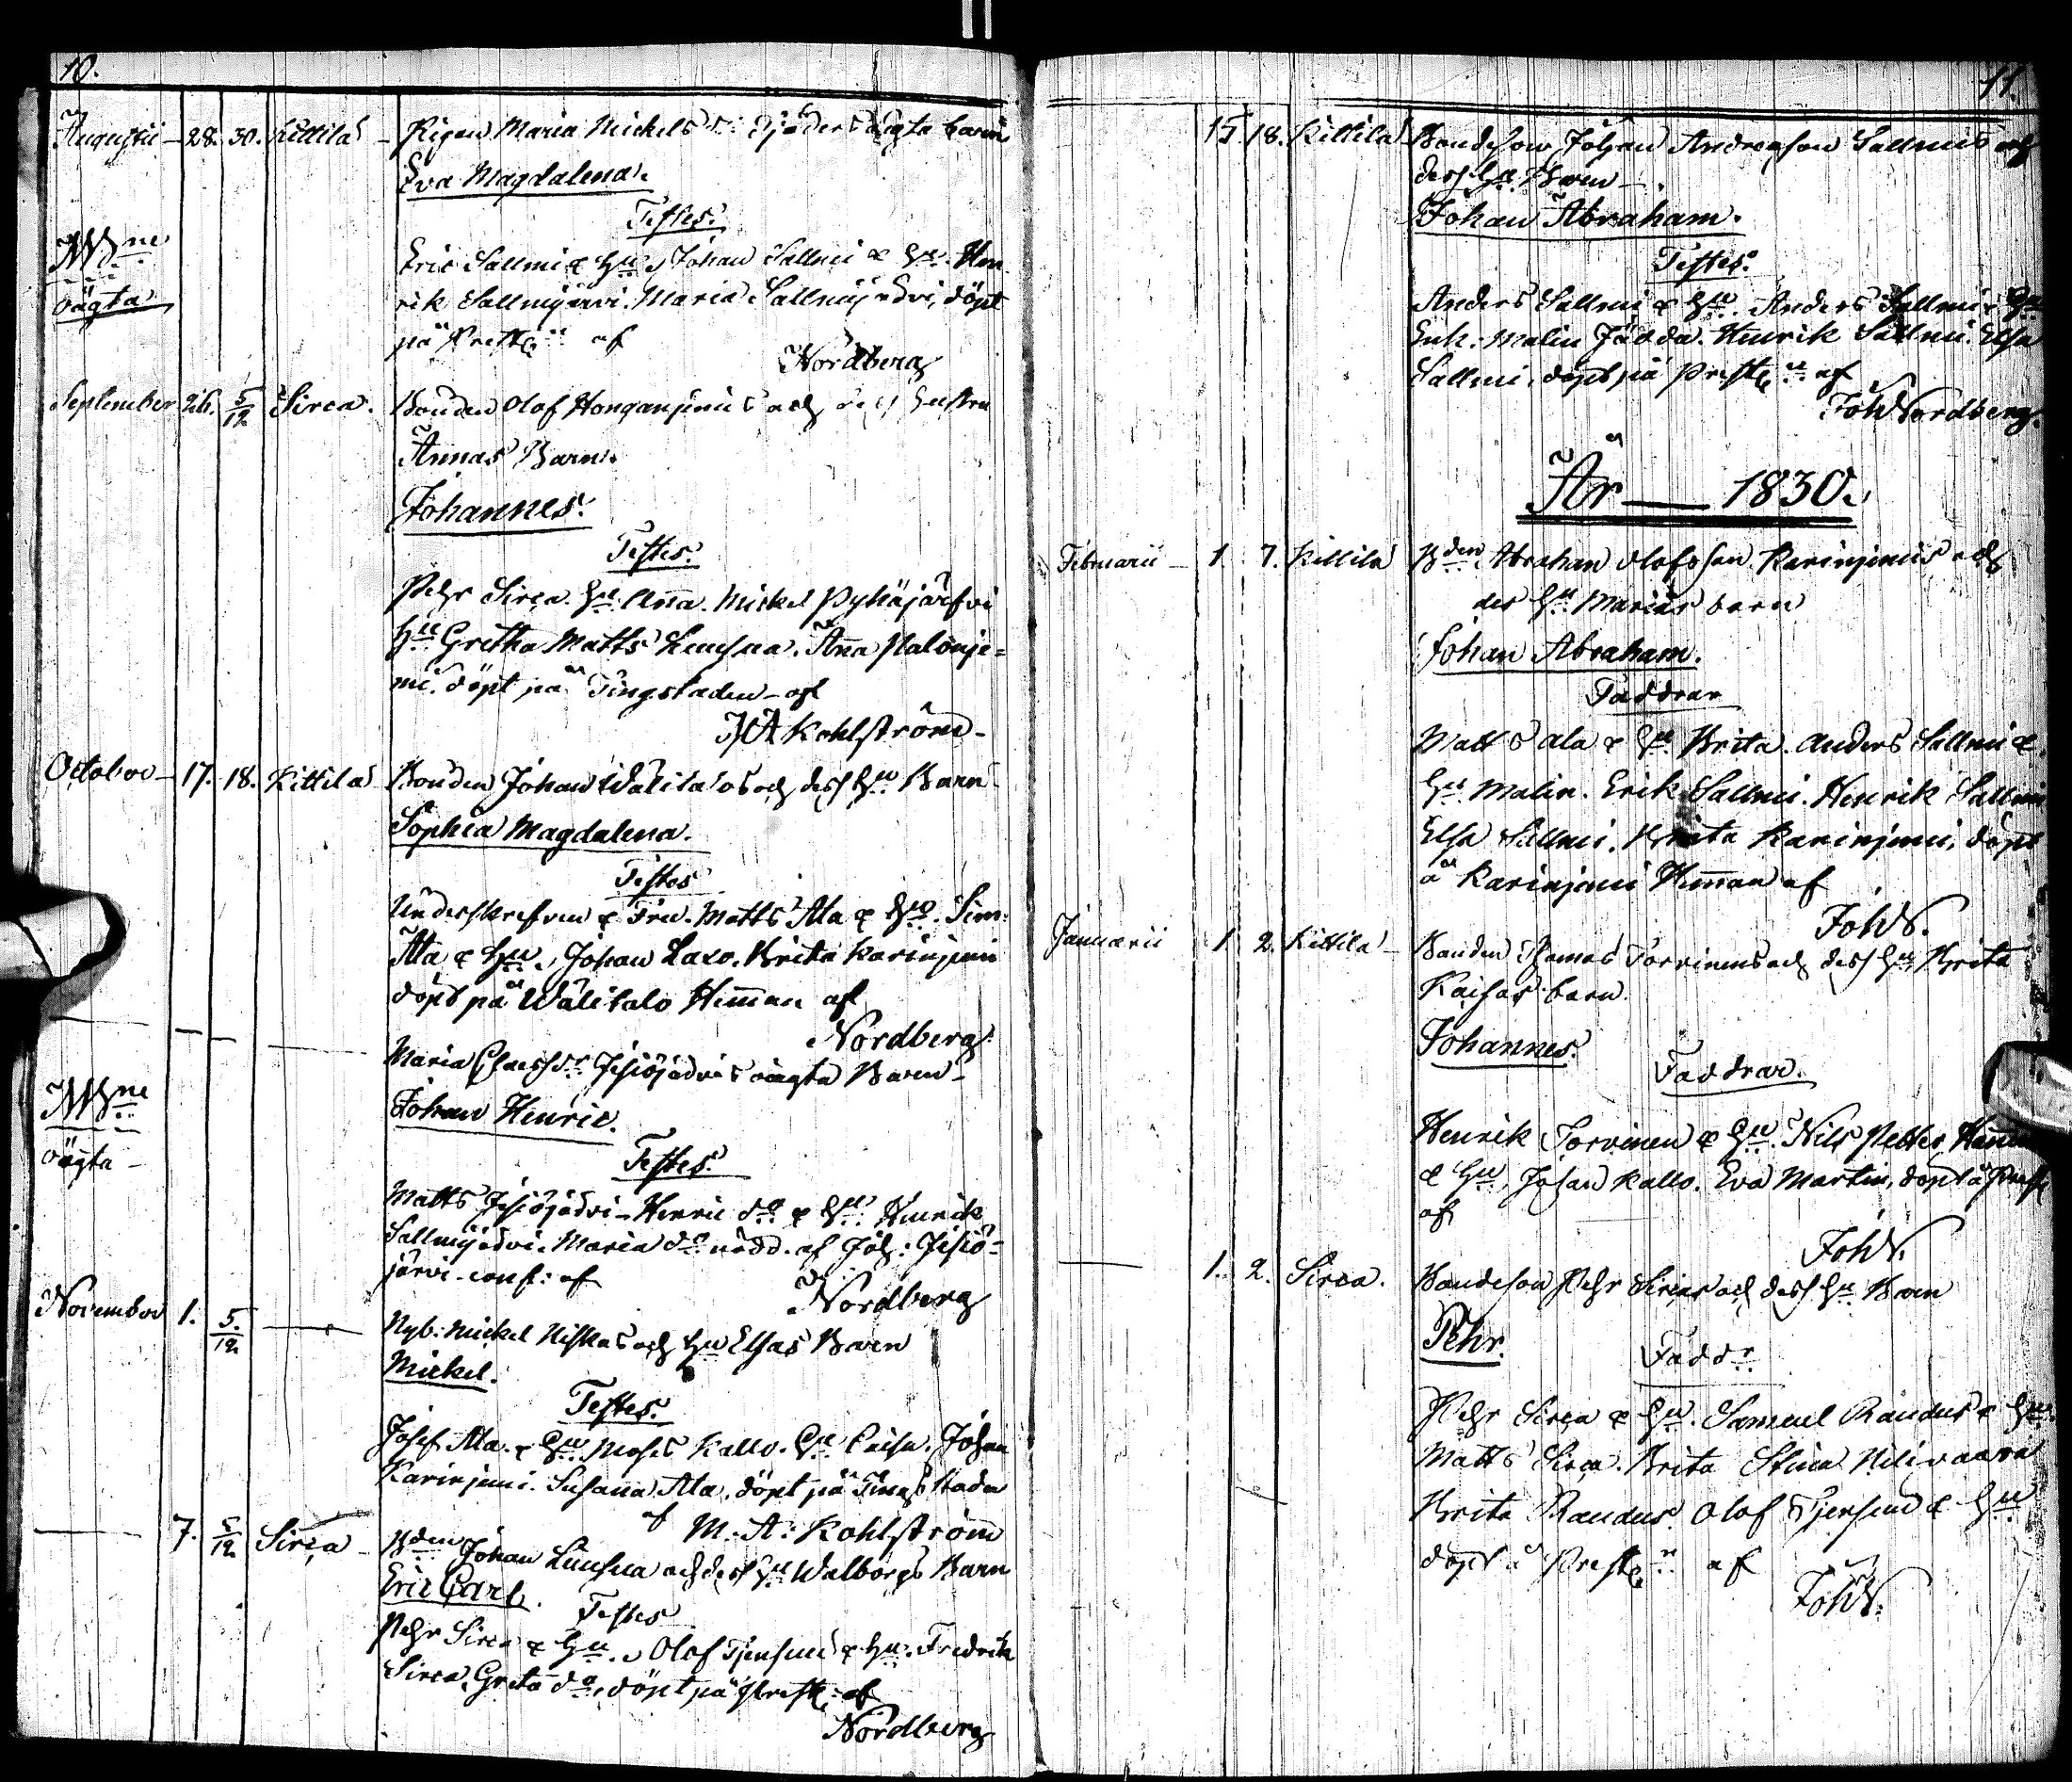 10.
Augusti 28. 30. Kittilä Pigan Maria Mickelsd:r oägta barn
Eva Magdalena.
Testes.
oägta
Eric Sallmi & Hu, Johan Sallmi & Hu. Hen
rik Sallmijärvi. Maria Sallmijärvi, döpt
på Prestg:n af
Nordberg
September 26. 5/12 Sirca. Bonden Olof Honganjemis och dess hustru
Annas Barn.
Johannes.
Testes.
Pehr Sirca. Hu Anna. Mickel Pyhäjärfvi
Hu Gretha Matts Luusua. Anna Palonje=
mi. döpt på Tingstaden af
Kohlström
October 17. 18. Kittilä Bonden Johan Walitalos och dess Hu Barn
Sophia Magdalena.
Testes
Underskrefven & Fru. Matts Ala & Hu. Sim:
Ala & Hu., Johan Laxo. Brita Karinjemi
döpt på Wälitalo Hemman af
Nordberg
Maria Claesd:r Jesiöjärvis oägta Barn
oägta
Johan Henric.
Testes.
Matts Jesiöjärvi Henric d:o & Hu. Henrik
Sallmijärvi. Maria d:o nödd. af Joh: Jesiö=
järvi conf: af
Nordberg
November 1. 5/12 Nyb. Mickel Niskas och Hu Elsas Barn
Mickel.
Testes.
Josef Ala. & Hu Moses Kallo. Hu Caisa. Johan
Karinjemi. Susanna Ala, döpt på Tings staden
af M. A. Kohlström
7. 5/12 Sirca Bden Johan Luusua och dess Hu Walborgs Barn
Eric Carl.
Testes
Pehr Sirca & Hu., Olof & Hu. Fredrik
Sirca, Greta d:o, döpt på Prestg: af
Nordberg
11.
15. 18. Kittilä Bondeson Johan Andersson Sallmis och
dess Hu Barn
Johan Abraham.
Testes.
Anders Sallmi & Hu. Anders Sallmi Hu
Enk. Malin Henrik Sallmi. Elsa
Sallmi, döpt på Prestg:n af
Joh Nordberg.
År 1830.
Februarii 1. 7. Kittilä Bden Abraham Olofsson Karinjemis och
des Hu Marias barn
Johan Abraham.
Faddrar
Matts Ala & Hu Brita. Anders Sallmi &
Hu Malin. Erik Sallmi. Henrik Sallmi
Elsa Sallmi. Brita Karinjemi, döpt
å Karinjemi Hemman af
JohN.
Januarii 1 2. Kittilä Bonden Thomas Torvinens och dess Hu Brita
Kaisas barn.
Johannes.
Faddrar.
Henrik Torvinen & Hu. Nils Petter
& Hu, Johan Kallo. Eva Martin, döpt å Prestg
af
JohN.
1. 2. Sirca. Bondeson Pehr Sircas och dess Hu Barn
Pehr.
Fadd:r
Pehr Sirca & Hu. Samuel Randus & Hu
Matts Sirca. Brita Stina Nilivaara
Brita Randus. Olof & Hu
döpt å Prestg:n af
JohN.